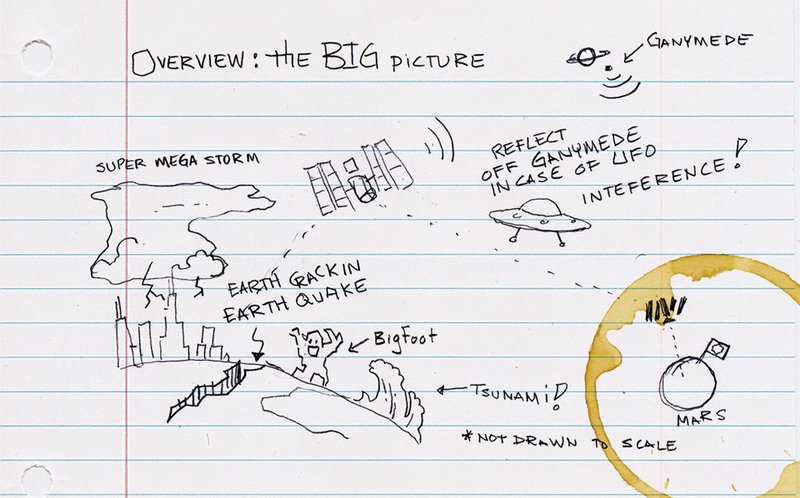 OVERVIEW: the BIG PICTURE
GANYMEDE
SUPER MEGA STORM
REFLECT
OFF GANYMEDE
IN CASE OF UFO
INTEFERENCE!
EARTH CRACKIN
EARTH QUAKE
BIGFOOT
TSUNAMI!
MARS
*NOT DRAWN TO SCALE